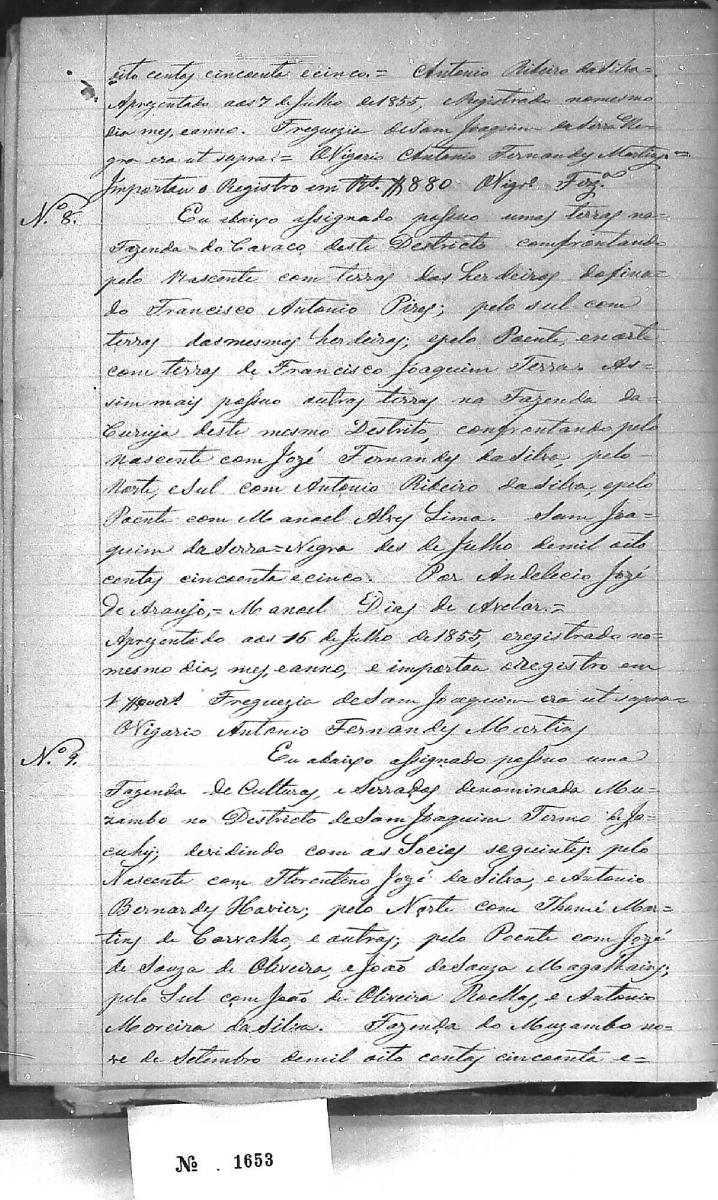 oito centos cincoenta e cinco.= Antonio Ribeiro da Silva=
Aprezentado aos 7 de Julho de 1855, e Registrado no mesmo
dia mez, e anno. Freguezia de Sam Joaquim da Serra Ne-
gra era ut supra:= O Vigario Antonio Fernandes Martins=
Importou o Registro em Rs. #880 O Vigrº Ferz.
Nº 8. Eu abaixo assignado possuo umas terras na
Fazenda do Cavaco deste Destricto comfrontando
pelo Nascente com terras dos herdeiros do fina-
do Francisco Antonio Pires; pelo sul com
terras dos mesmos herdeiros; e pelo Poente, e norte
com terras de Francisco Joaquim Terra. As-
sim mais possuo outras terras na Fazenda da-
Curuja deste mesmo Destrito, confrontando pelo
nascente com Jozé Fernandes da Silva, pelo-
Norte, e Sul com Antonio Ribeiro da Silva, e pelo
Poente com Manoel Alves Lima. Sam Joa-
quim da Serra=Negra des de Julho de mil oito
centos cincoenta e cinco. Por Andelecio Jozé
de Araujo,= Manoel Dias de Avelar.=
Aprezentado aos 16 de Julho de 1855, e registrado no-
mesmo dia, mez, e anno, e importou o registro em
Freguezia de Sam Joaquim era ut supra=
O Vigario Antonio Fernandes Martins
Nº 9. Eu abaixo assignado possuo uma
Fazenda de Culturas e Serrados denominada Mu-
zambo no Districto de Sam Joaquim Termo de Ja-
cuhy; devidindo com os Socios seguintes: pelo
Nascente com Florentino Jozé da Silva, e Antonio
Bernardes Xavier; pelo Norte com Thomé Mar-
tins de Carvalho, e outros; pelo Poente com Jozé
de Souza de Oliveira, e João de Souza Magalhains;
pelo Sul com João de Oliveira Roellas, e Antonio
Moreira da Silva. Fazenda do Muzambo no-
ve de Setembro de mil oito centos cincoenta e=
№ . 1653